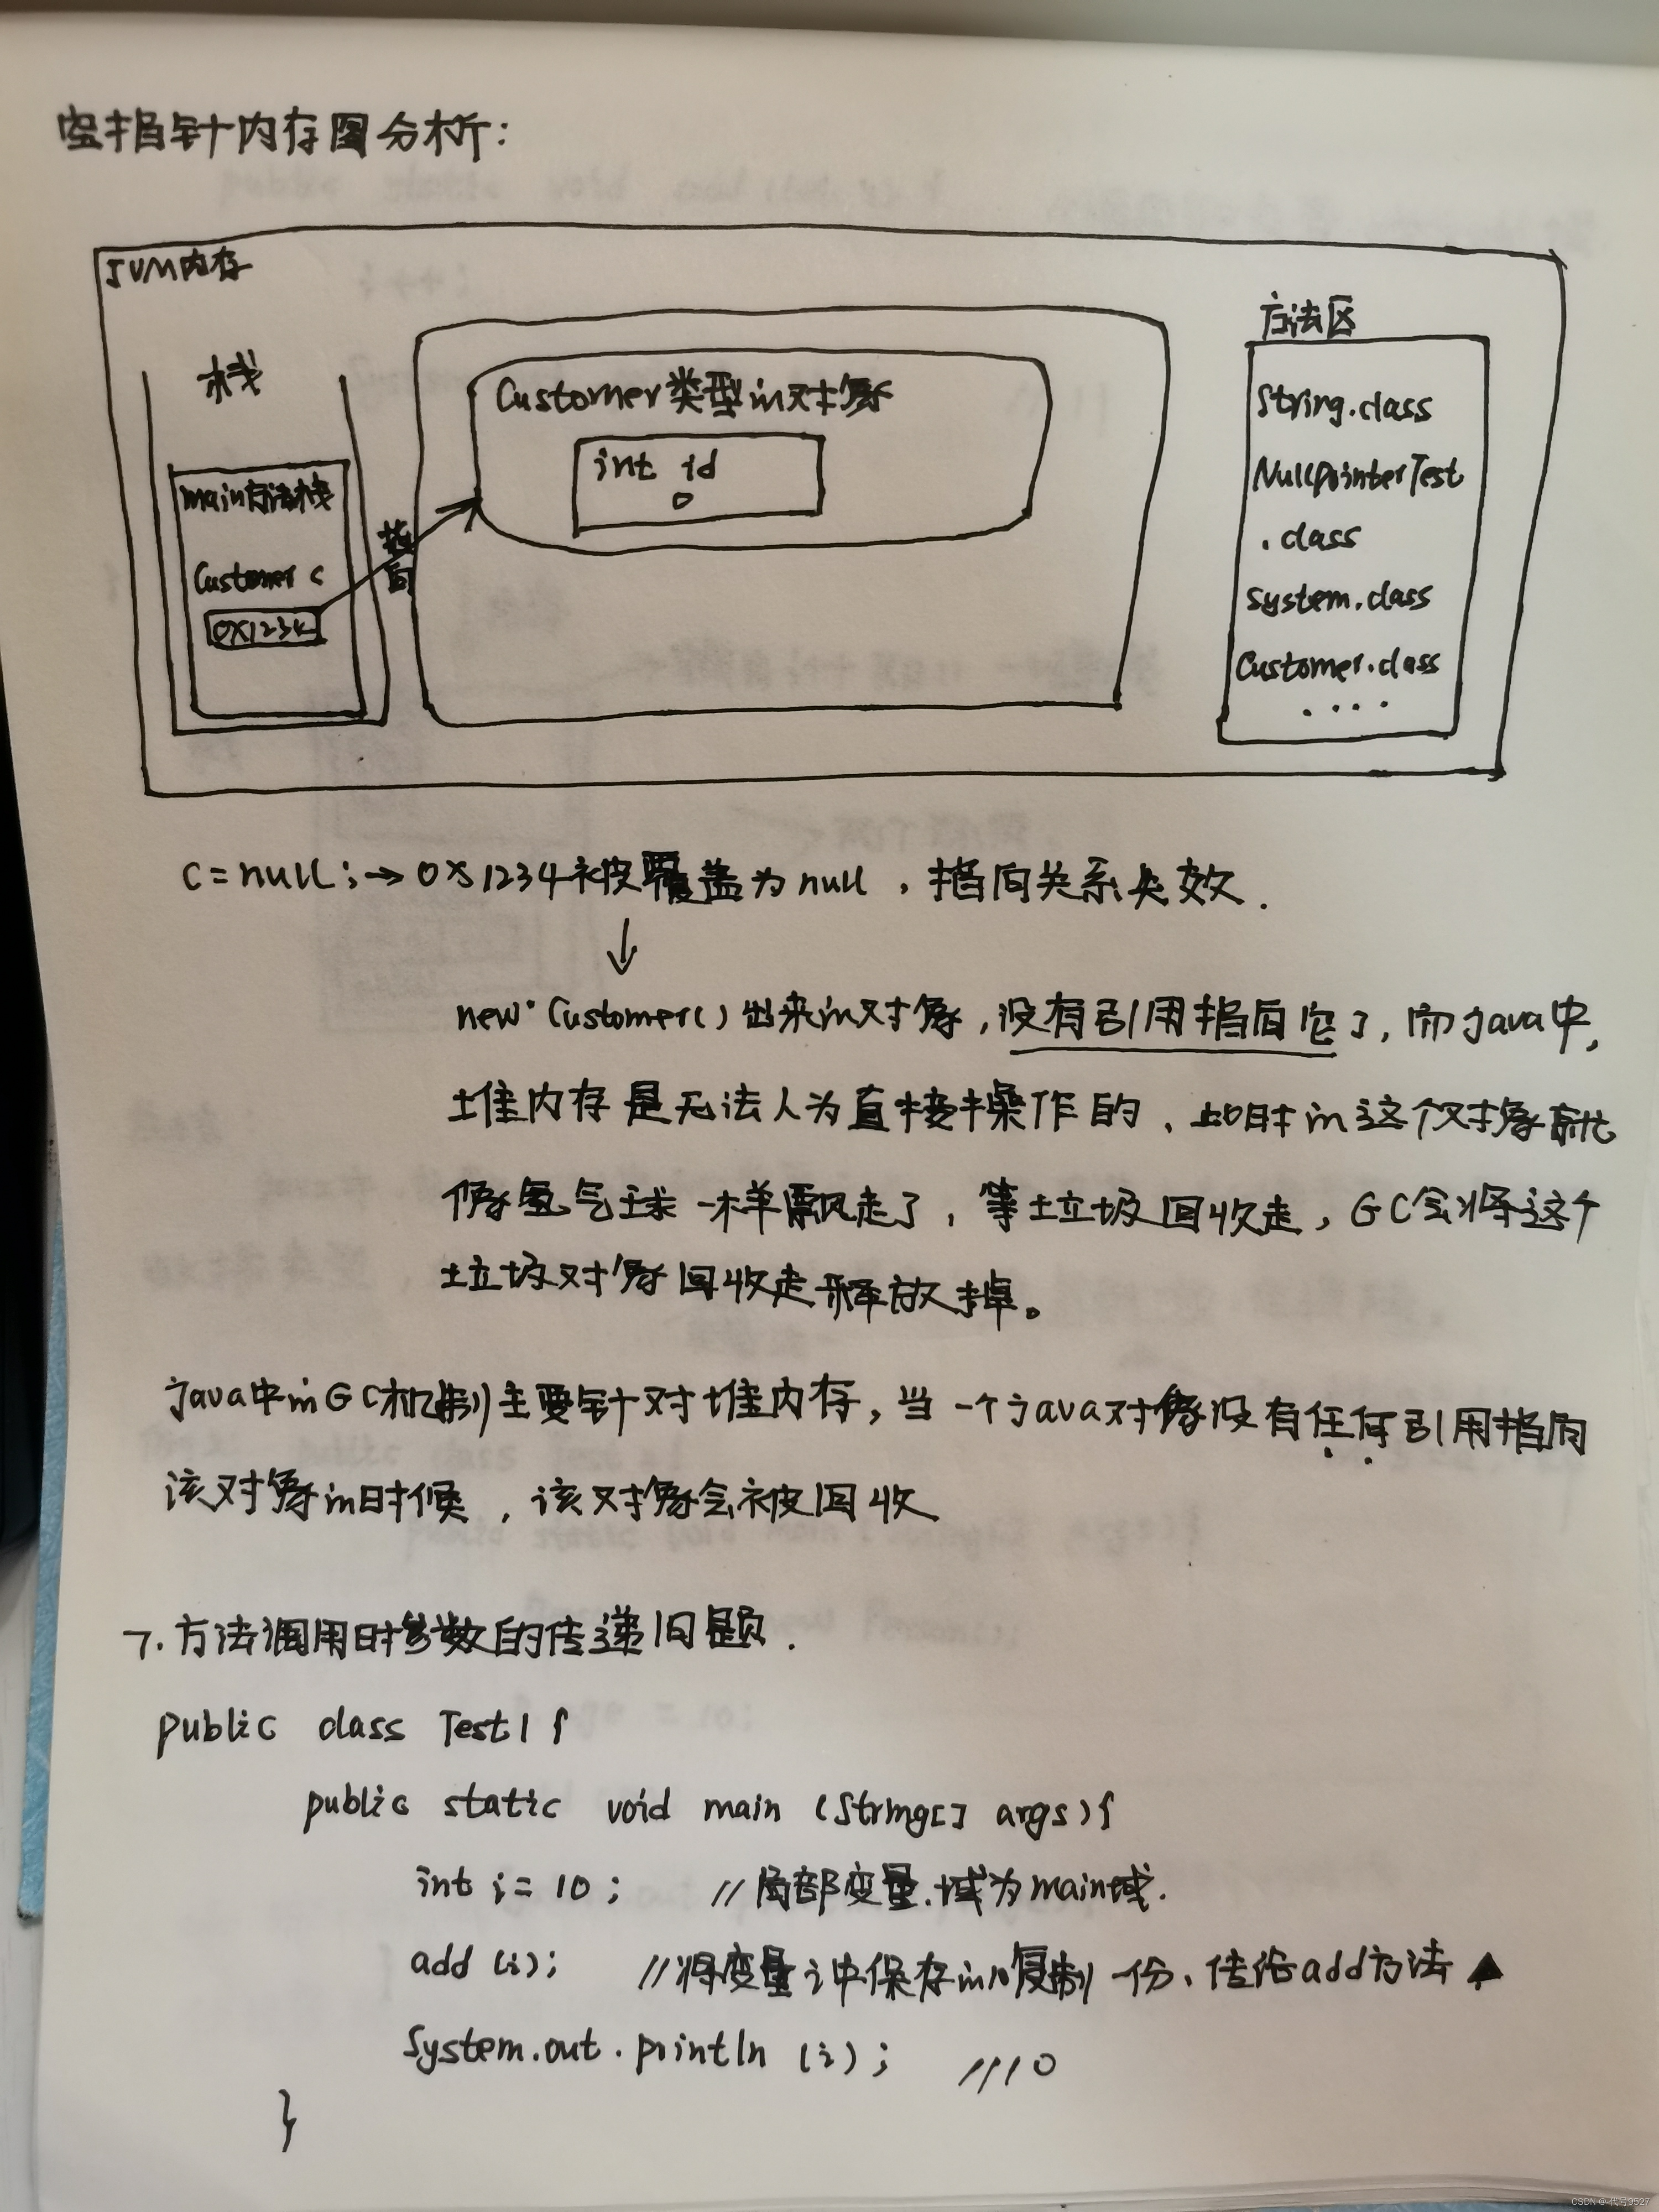 空指针内存图分析:
JVM内存
栈
main方法栈
Customer c
0x1234
指向
Customer类型的对象
int id
0
方法区
String.class
NullPointerTest
.class
System.class
Customer.class
....
c=null;→0x1234被覆盖为null,指向关系失效.
↓
new Customer()出来的对象,没有引用指向它了,而java中,
堆内存是无法人为直接操作的,此时的这个对象就
像氢气球一样飘走了,等垃圾回收走,GC会将这个
垃圾对象回收走释放掉。
java中的GC机制主要针对堆内存,当一个java对象没有任何引用指向
该对象的时候,该对象会被回收
7.方法调用时参数的传递问题.
public class Test1{
public static void main (String[] args){
int i = 10; //局部变量.域为main域.
add (i); //将变量i中保存的10复制一份、传给add方法▲
System.out.println (i); //10
}
CSDN @代号9527